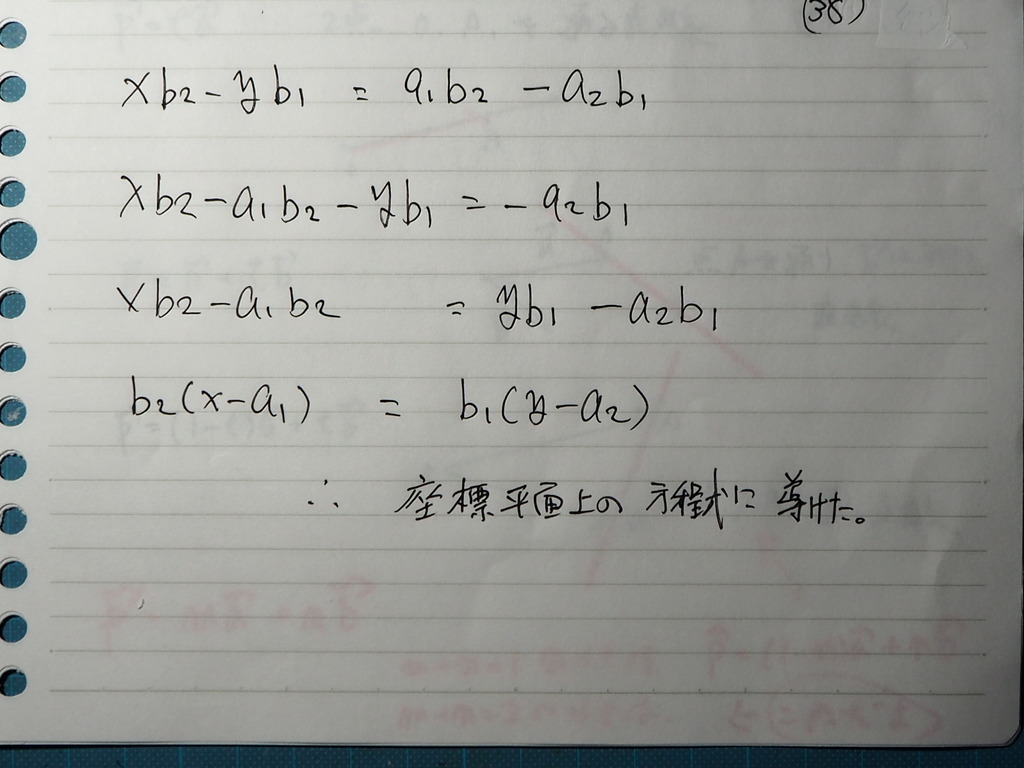 (38)
xb₂-yb₁ = a₁b₂ - a₂b₁
xb₂-a₁b₂-yb₁ = -a₂b₁
xb₂-a₁b₂ = yb₁ -a₂b₁
b₂(x-a₁) = b₁(y-a₂)
∴ 座標平面上の方程式に導けた。